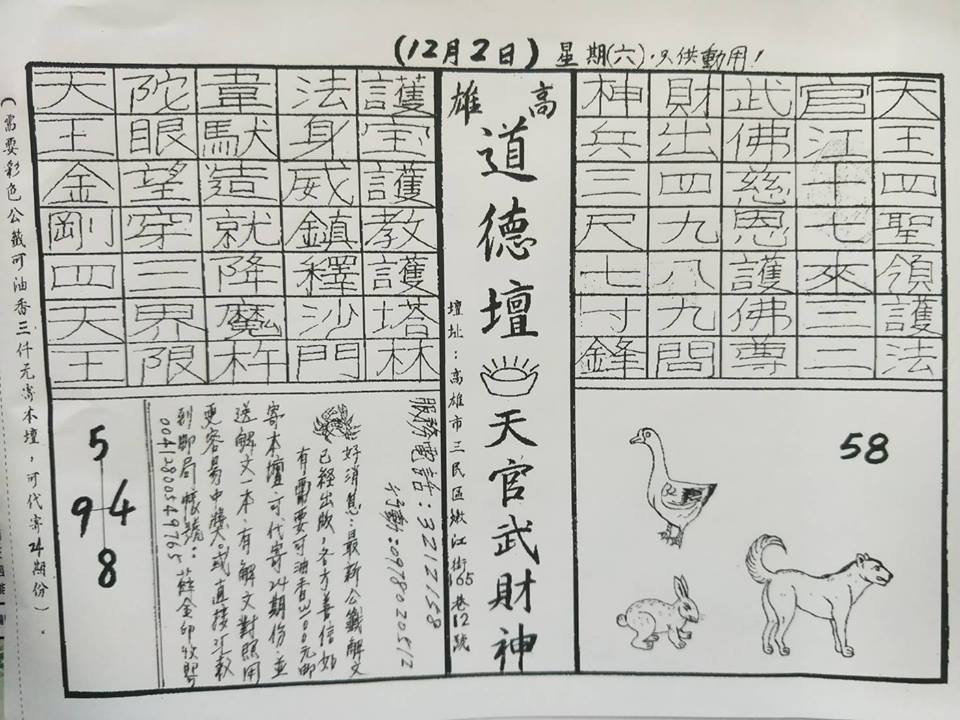 (12月2日) 星期(六),只供動用!
天王四聖領護法
官江十七來三二
武佛慈恩護佛尊
財出四九八九問
神兵三尺七寸鋒
58
高雄
道德壇
天官武財神
壇址:高雄市三民區嫩江街165巷12號
護宝護教護塔林
法身威鎮釋沙門
韋馱造就降魔杵
陀眼望穿三界限
天王金剛四天王
服務電話:3212158
行動:0978020512
好消息:最新公籤解文
已經出版,各方善信如
有需要可油香3000元郵
寄本壇,可代寄24期份,並
送解文一本,有解文對照用
更容易中獎。或直接汇款
到郵局帳號:
00412800549765 蘇金印收
5
9 4
8
(需要彩色公籤可油香三仟元寄本壇,可代寄24期份).